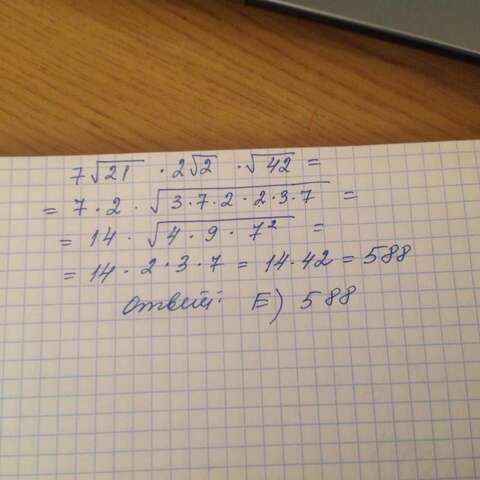 7√21 · 2√2 · √42 =
= 7 · 2 · √3 · 7 · 2 · 2 · 3 · 7 =
= 14 · √4 · 9 · 7² =
= 14 · 2 · 3 · 7 = 14 · 42 = 588
Ответ: Б) 588